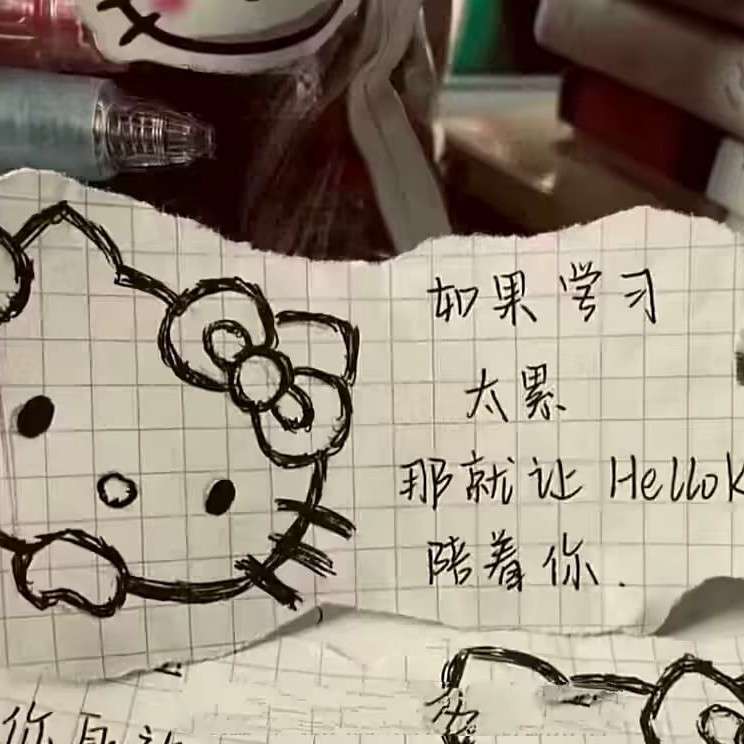 如果学习
太累
那就让HelloK
陪着你.